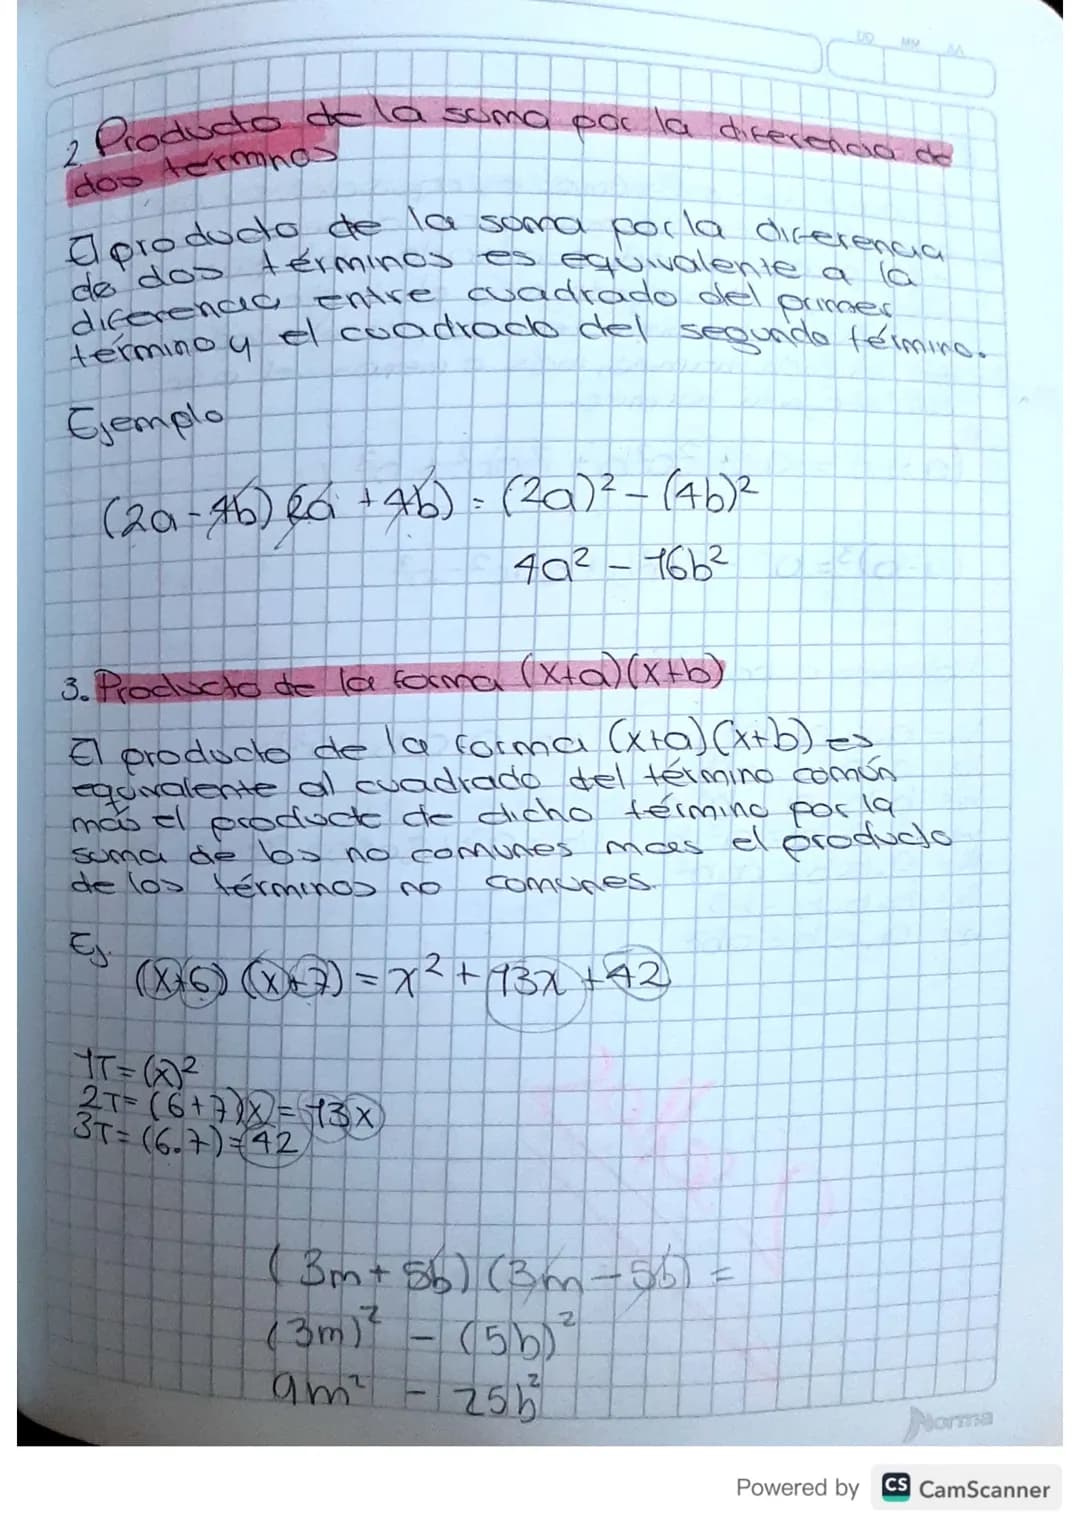 DD MM AA
2. Producto de la suma por la diferencia de
dos terminos
El producto de la suma por la diferencia
de dos términos es equivalente a la
diferencia entre cuadrado del primer
término y el cuadrado del segundo término.
Ejemplo
(2a-4b)(2a+4b) = (2a)² - (4b)²
4a² - 16b²
3. Producto de la forma (x+a)(x+b)
El producto de la forma (x+a)(x+b) es
equivalente al cuadrado del término común
más el producto de dicho término por la
suma de los no comunes mas el producto
de los términos no comunes.
Ej.
(x+6)(x+7) = x² + 13x + 42
1T = (x)²
2T = (6+7)x = 13x
3T = (6.7) = 42
(3m + 5b)(3m - 5b) =
(3m)² - (5b)²
9m² - 25b²
Norma
Powered by CS CamScanner